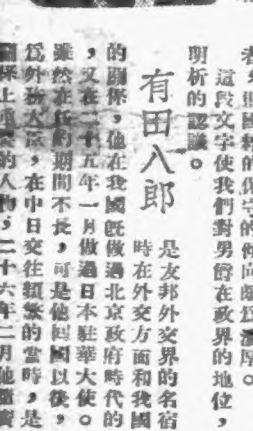 國粹的保守的傾向頗爲濃厚。
這段文字使我們對男爵在政界的地位，
明析的認識。
有田八郎
是友邦外交界的名宿
時在外交方面和我國
的關係，他在我國既做過北京政府時代的
，又在二十五年一月做過日本駐華大使。
雖然在任的期間不長，可是他囘國以後，
爲外務大臣，在中日交往頻繁的當時，是
上重要的人物，二十六年二月他